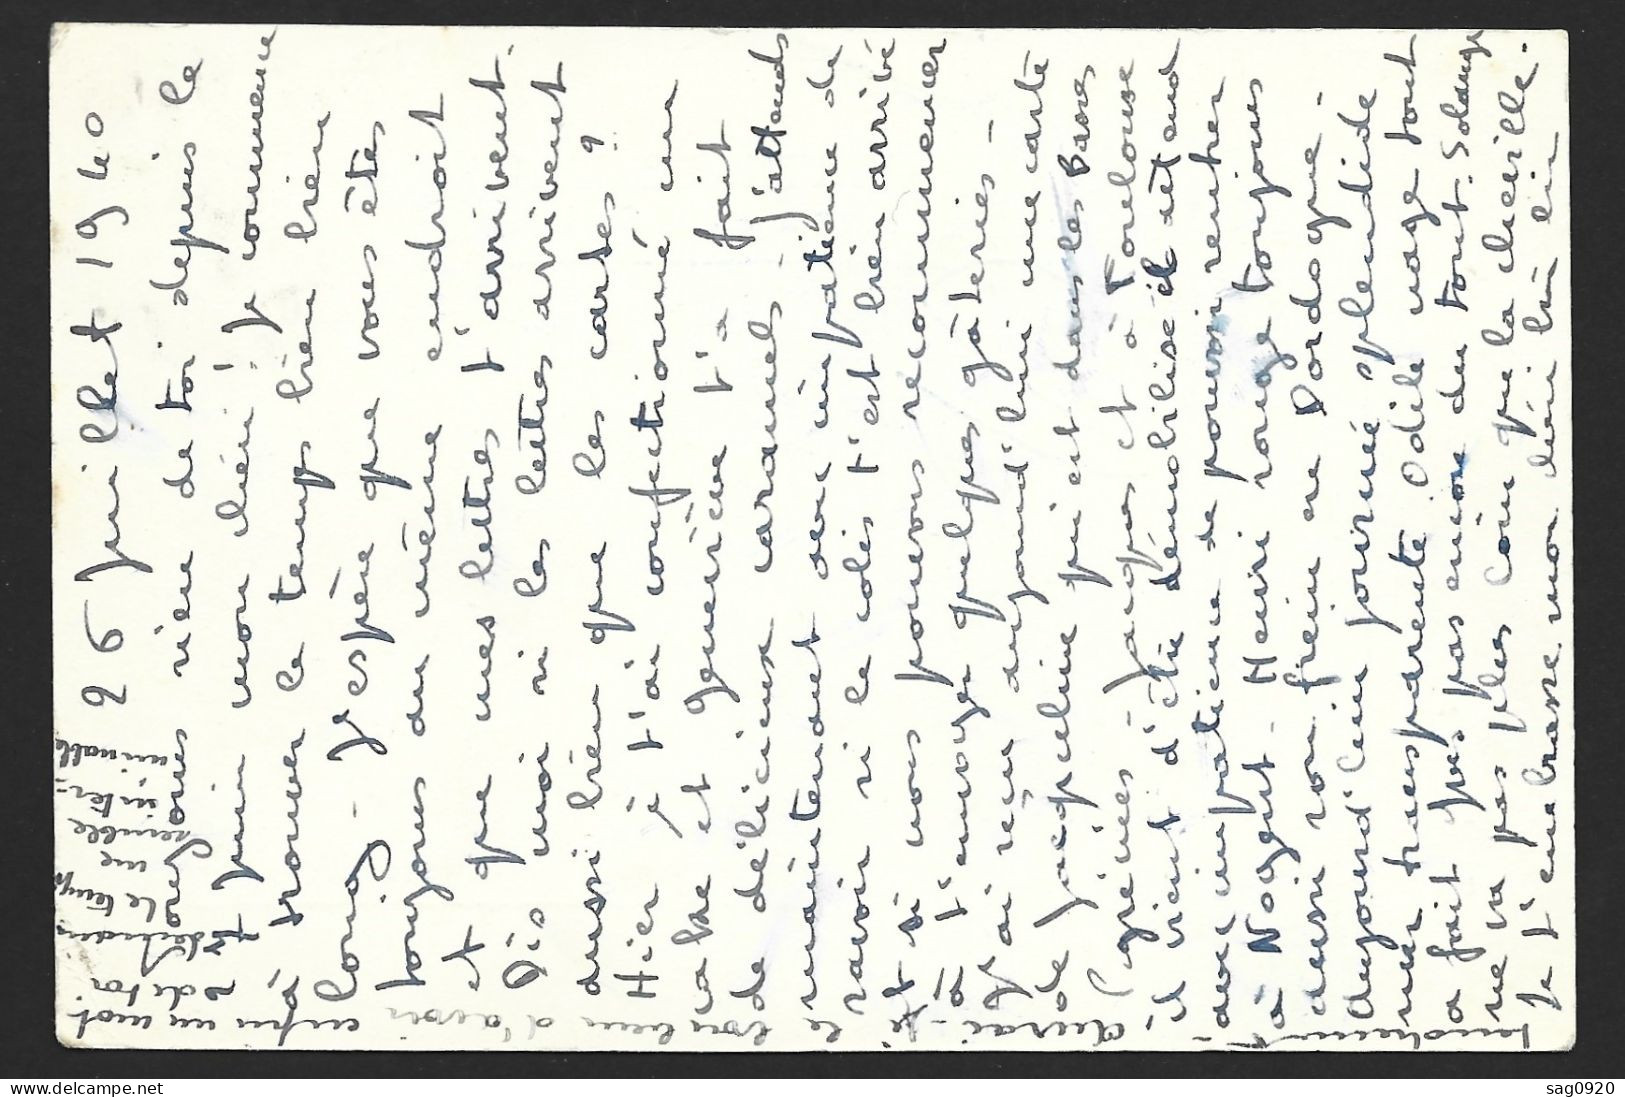 26 Juillet 1940
sommes rien de toi depuis le
juin mon chéri ! je commence
à trouver le temps bien bien
long - J'espère que vous êtes
toujours au même endroit
et que mes lettres t'arrivent.
Dis moi si les lettres arrivent
aussi bien que les cartes ?
Hier je t'ai confectionné un
cake et Guenièvre t'a fait
de délicieux caramels - J'attends
maintenant avec impatience de
savoir si le colis t'est bien arrivé
et si nous pouvons recommencer
à t'envoyer quelques gâteries -
J'ai reçu aujourd'hui une carte
de Jacqueline qui est dans les Basses
Pyrénées - Jacques est à Toulouse
et vient d'être démobilisé et attend
avec impatience de pouvoir rentrer
à Nogent - Henri ronge toujours
aussi son frein en Dordogne -
Aujourd'hui journée splendide
mer transparente Odile nage tout
a fait pas encore du tout. Solange
ne va pas plus loin que la cheville.
Je t'embrasse mon chéri
le temps
me
semble
inter-
minable
Aurai-je le bonheur d'avoir enfin un mot
de toi